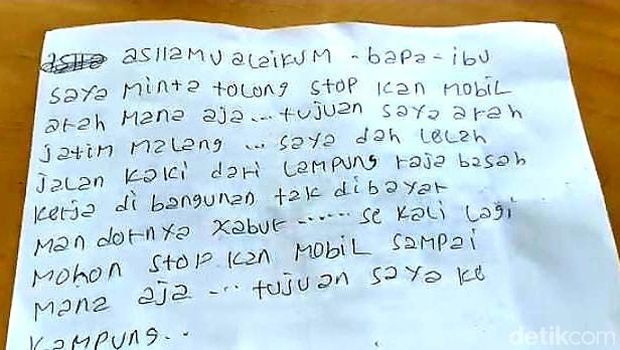 asllamualaikum - bapa - ibu
saya minta tolong stop kan mobil
arah mana aja ... tujuan saya arah
jatim malang ... saya dah lelah
jalan kaki dari lampung raja basah
kerja di bangunan tak dibayar
mandornya kabur ...... se kali lagi
mohon stop kan mobil sampai
mana aja ... tujuan saya ke
kampung..
detikcom